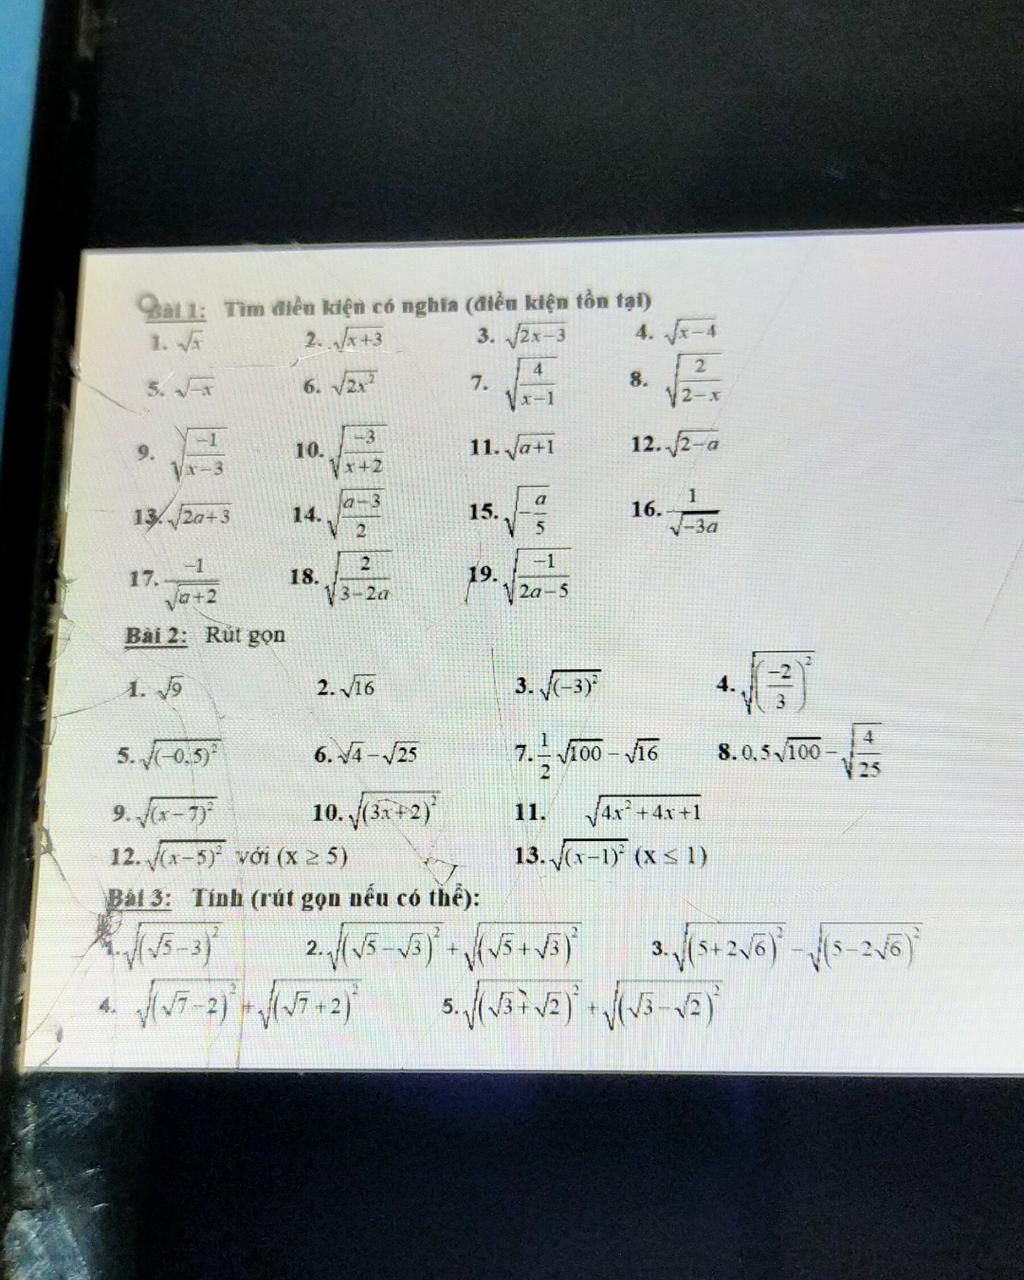 Bài 1: Tìm điều kiện có nghĩa (điều kiện tồn tại)
1. √x 2. √(x+3) 3. √(2x−3) 4. √(x−4)
5. √(−x) 6. √(2x²) 7. √(4/(x−1)) 8. √(2/(2−x))
9. √(−1/(x−3)) 10. √(−3/(x+2)) 11. √(a+1) 12. √(2−a)
13. √(2a+3) 14. √((a−3)/2) 15. √(−a/5) 16. 1/√(−3a)
17. −1/√(a+2) 18. √(2/(3−2a)) 19. √(−1/(2a−5))
Bài 2: Rút gọn
1. √9 2. √16 3. √((−3)²) 4. √((−2/3)²)
5. √((−0,5)²) 6. √4 − √25 7. 1/2 √100 − √16 8. 0,5√100 − √(4/25)
9. √((x−7)²) 10. √((3x+2)²) 11. √(4x²+4x+1)
12. √((x−5)²) với (x ≥ 5) 13. √((x−1)²) (x ≤ 1)
Bài 3: Tính (rút gọn nếu có thể):
1. √((√5−3)²) 2. √((√5−√3)²) + √((√5+√3)²) 3. √((5+2√6)²) − √((5−2√6)²)
4. √((√7−2)²) + √((√7+2)²) 5. √((√3+√2)²) + √((√3−√2)²)